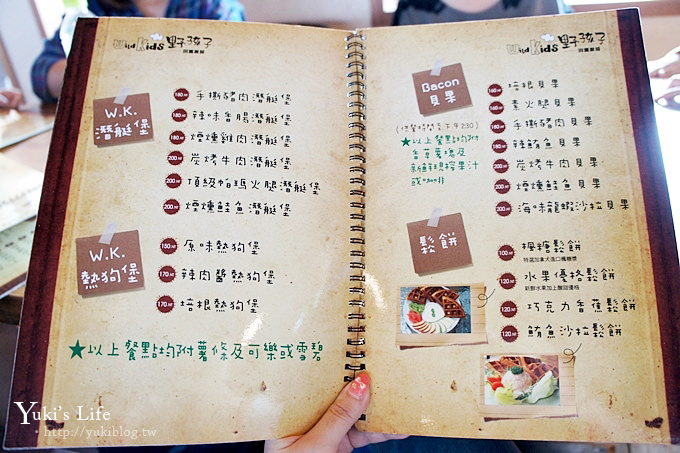 Wild Kids 野孩子
W.K.
潛艇堡
180 NT 手撕豬肉潛艇堡
180 NT 辣味香腸潛艇堡
180 NT 煙燻雞肉潛艇堡
200 NT 炭烤牛肉潛艇堡
200 NT 頂級帕瑪火腿潛艇堡
200 NT 煙燻鮭魚潛艇堡
W.K.
熱狗堡
150 NT 原味熱狗堡
170 NT 辣肉醬熱狗堡
170 NT 培根熱狗堡
★以上餐點均附薯條及可樂或雪碧
Wild Kids 野孩子
Bacon
貝果
(供餐時間至下午2:30)
★以上餐點均附
香草薯塊及
新鮮現榨果汁
或咖啡
160 培根貝果
160 NT 燻火腿貝果
180 NT 手撕豬肉貝果
180 NT 辣鮪魚貝果
200 NT 炭烤牛肉貝果
200 NT 煙燻鮭魚貝果
200 NT 海味龍蝦沙拉貝果
鬆餅
100 NT 楓糖鬆餅
特選加拿大進口楓糖漿
120 NT 水果優格鬆餅
新鮮水果加上酸甜優格
120 NT 巧克力香蕉鬆餅
120 NT 鮪魚沙拉鬆餅
Yuki's Life
http://yukiblog.tw